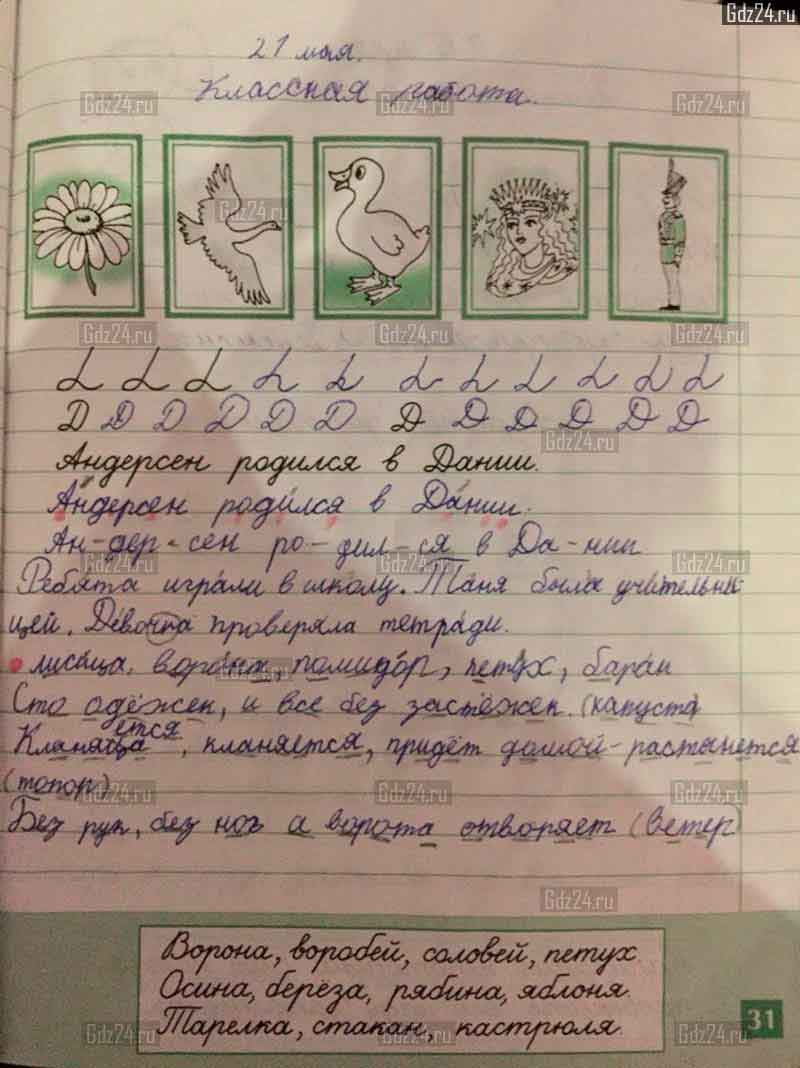 Gdz24.ru
21 мая.
Классная работа.
Д Д Д Д Д Д Д Д Д Д Д Д
Андерсен родился в Дании.
Андерсен родился в Дании.
Ан-дер-сен ро-дил-ся в Да-нии
Ребята играли в школу. Таня была учительни
цей. Девочка проверяла тетради.
лисица, помидор, петух, баран
Сто одёжек, и все без застёжек. (капуста)
ется
кланяется, придёт домой - растянется
(топор)
Без рук, без ног а ворота отворяет (ветер)
Ворона, воробей, соловей, петух.
Осина, берёза, рябина, яблоня.
Тарелка, стакан, кастрюля.
31